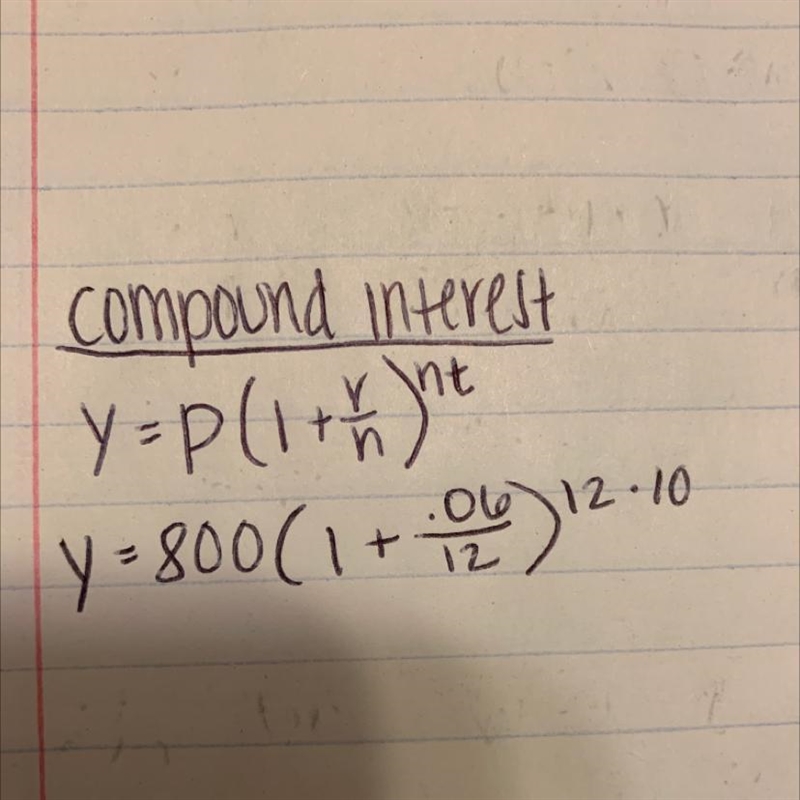 compound interest
y = P(1 + r/n)^nt
y = 800(1 + .06/12)^12·10